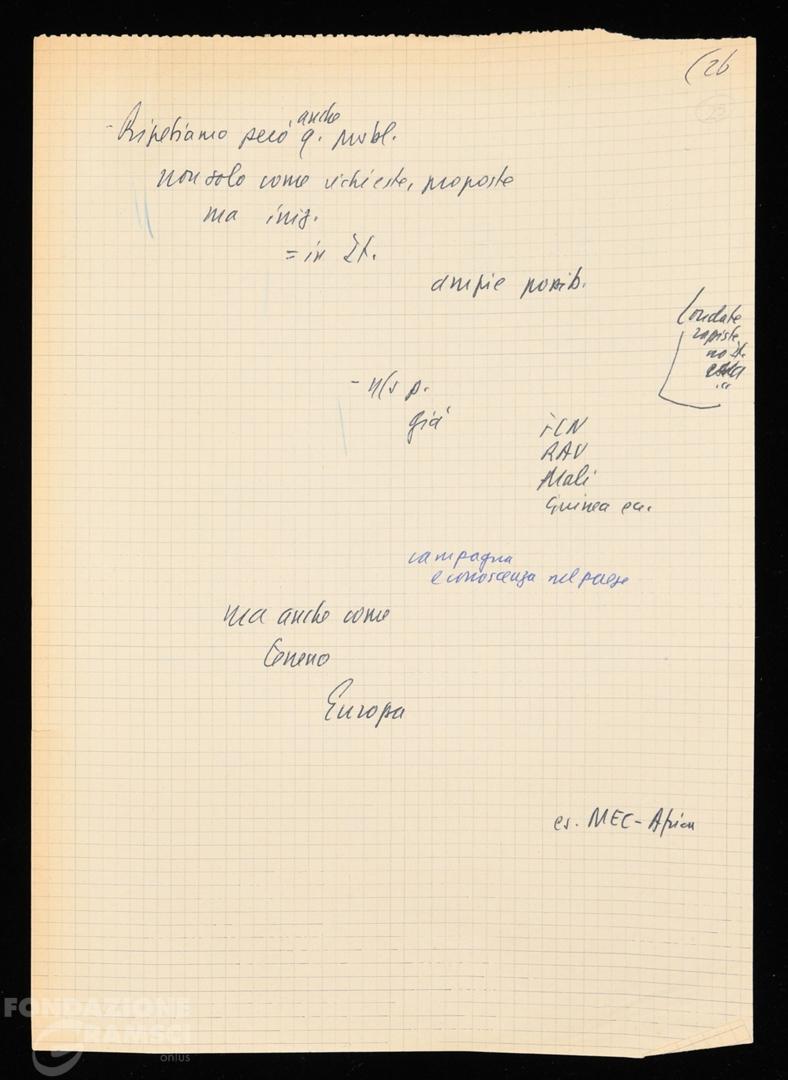 (26
25
- Ripetiamo però anche q. probl.
non solo come richieste, proposte
ma iniz.
= in It.
ampie possib.
- n/s p.
già
FLN
RAU
Mali
Guinea ecc.
campagna
e conoscenza nel paese
ma anche come
terreno
Europa
es. MEC - Africa
FONDAZIONE
GRAMSCI
onlus